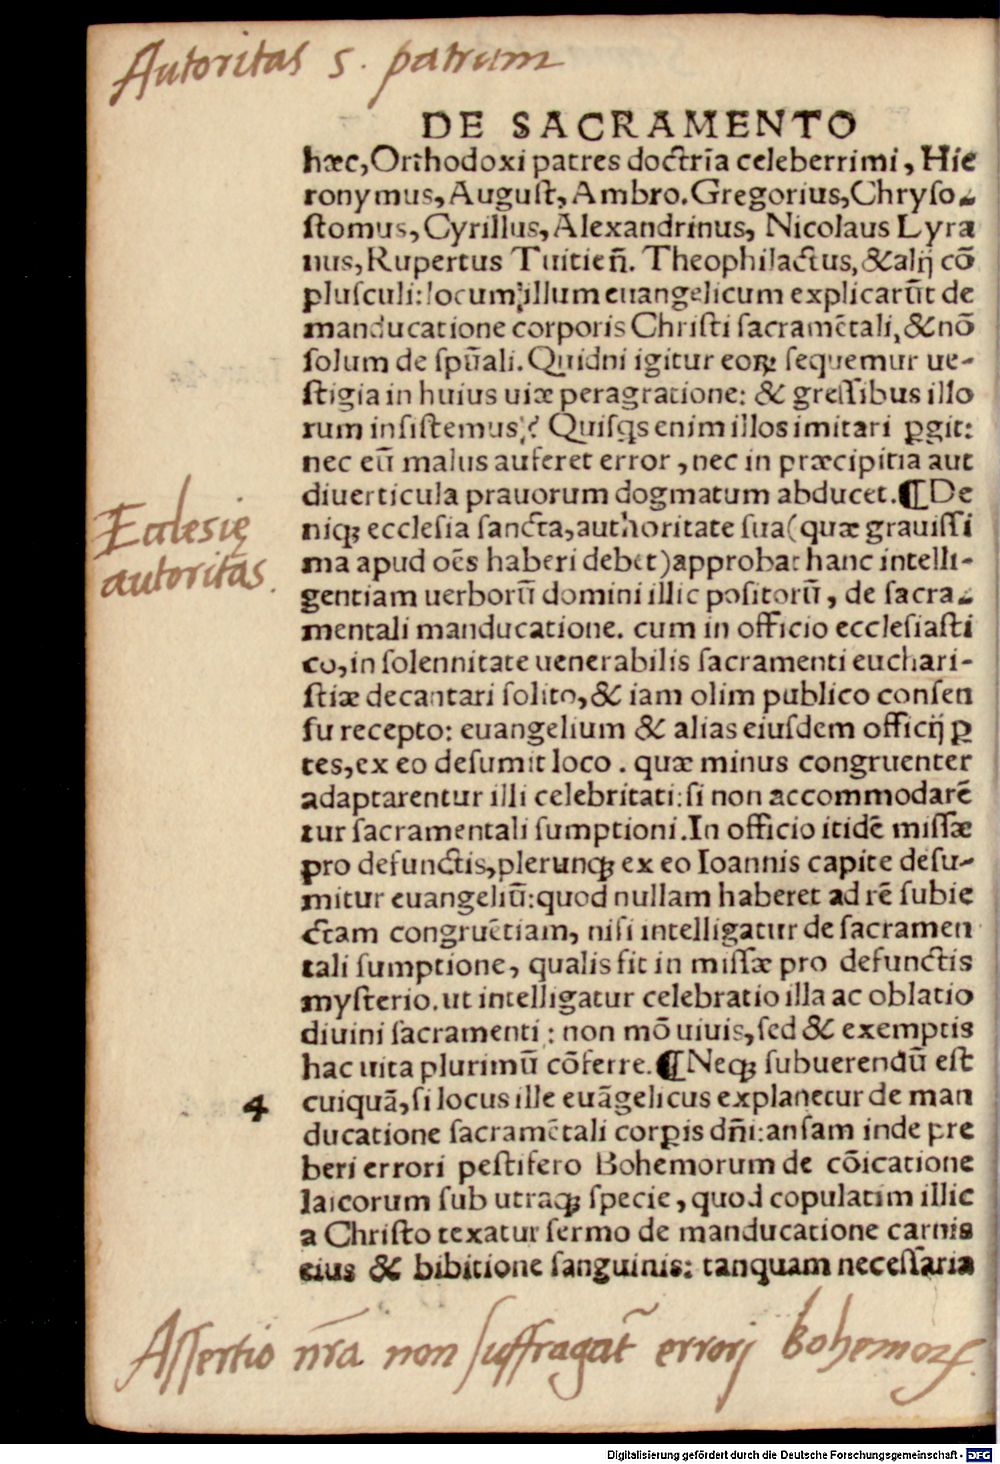 Autoritas s. patrum
DE SACRAMENTO
hæc, Orthodoxi patres doctrīa celeberrimi, Hie
ronymus, August, Ambro. Gregorius, Chryso-
stomus, Cyrillus, Alexandrinus, Nicolaus Lyra
nus, Rupertus Tuitieñ. Theophilactus, & alij cō
plusculi: locum illum euangelicum explicarūt de
manducatione corporis Christi sacramētali, & nō
solum de spūali. Quidni igitur eoꝝ sequemur ue-
stigia in huius uiæ peragratione: & gressibus illo
rum insistemus? Quisqs enim illos imitari ꝑgit:
nec eū malus auferet error, nec in præcipitia aut
diuerticula prauorum dogmatum abducet. ¶ De
niqꝫ ecclesia sancta, authoritate sua (quæ grauissi
ma apud oēs haberi debet) approbat hanc intelli-
gentiam uerborū domini illic positorū, de sacra-
mentali manducatione. cum in officio ecclesiasti
co, in solennitate uenerabilis sacramenti euchari-
stiæ decantari solito, & iam olim publico consen
su recepto: euangelium & alias eiusdem officij ꝑ
tes, ex eo desumit loco. quæ minus congruenter
adaptarentur illi celebritati: si non accommodarē
tur sacramentali sumptioni. In officio itidē missæ
pro defunctis, plerunqꝫ ex eo Ioannis capite desu-
mitur euangeliū: quod nullam haberet ad rē subie
ctam congruētiam, nisi intelligatur de sacramen
tali sumptione, qualis fit in missæ pro defunctis
mysterio. ut intelligatur celebratio illa ac oblatio
diuini sacramenti: non mō uiuis, sed & exemptis
hac uita plurimū cōferre. ¶ Neqꝫ subuerendū est
cuiquā, si locus ille euāgelicus explanetur de man
ducatione sacramētali corꝑis dñi: ansam inde pre
beri errori pestifero Bohemorum de cōicatione
laicorum sub utraqꝫ specie, quod copulatim illic
a Christo texatur sermo de manducatione carnis
eius & bibitione sanguinis: tanquam necessaria
Ecclesię
autoritas.
4
Assertio nr̃a non suffragat̃ errorj bohemoꝝ.
Digitalisierung gefördert durch die Deutsche Forschungsgemeinschaft - DFG